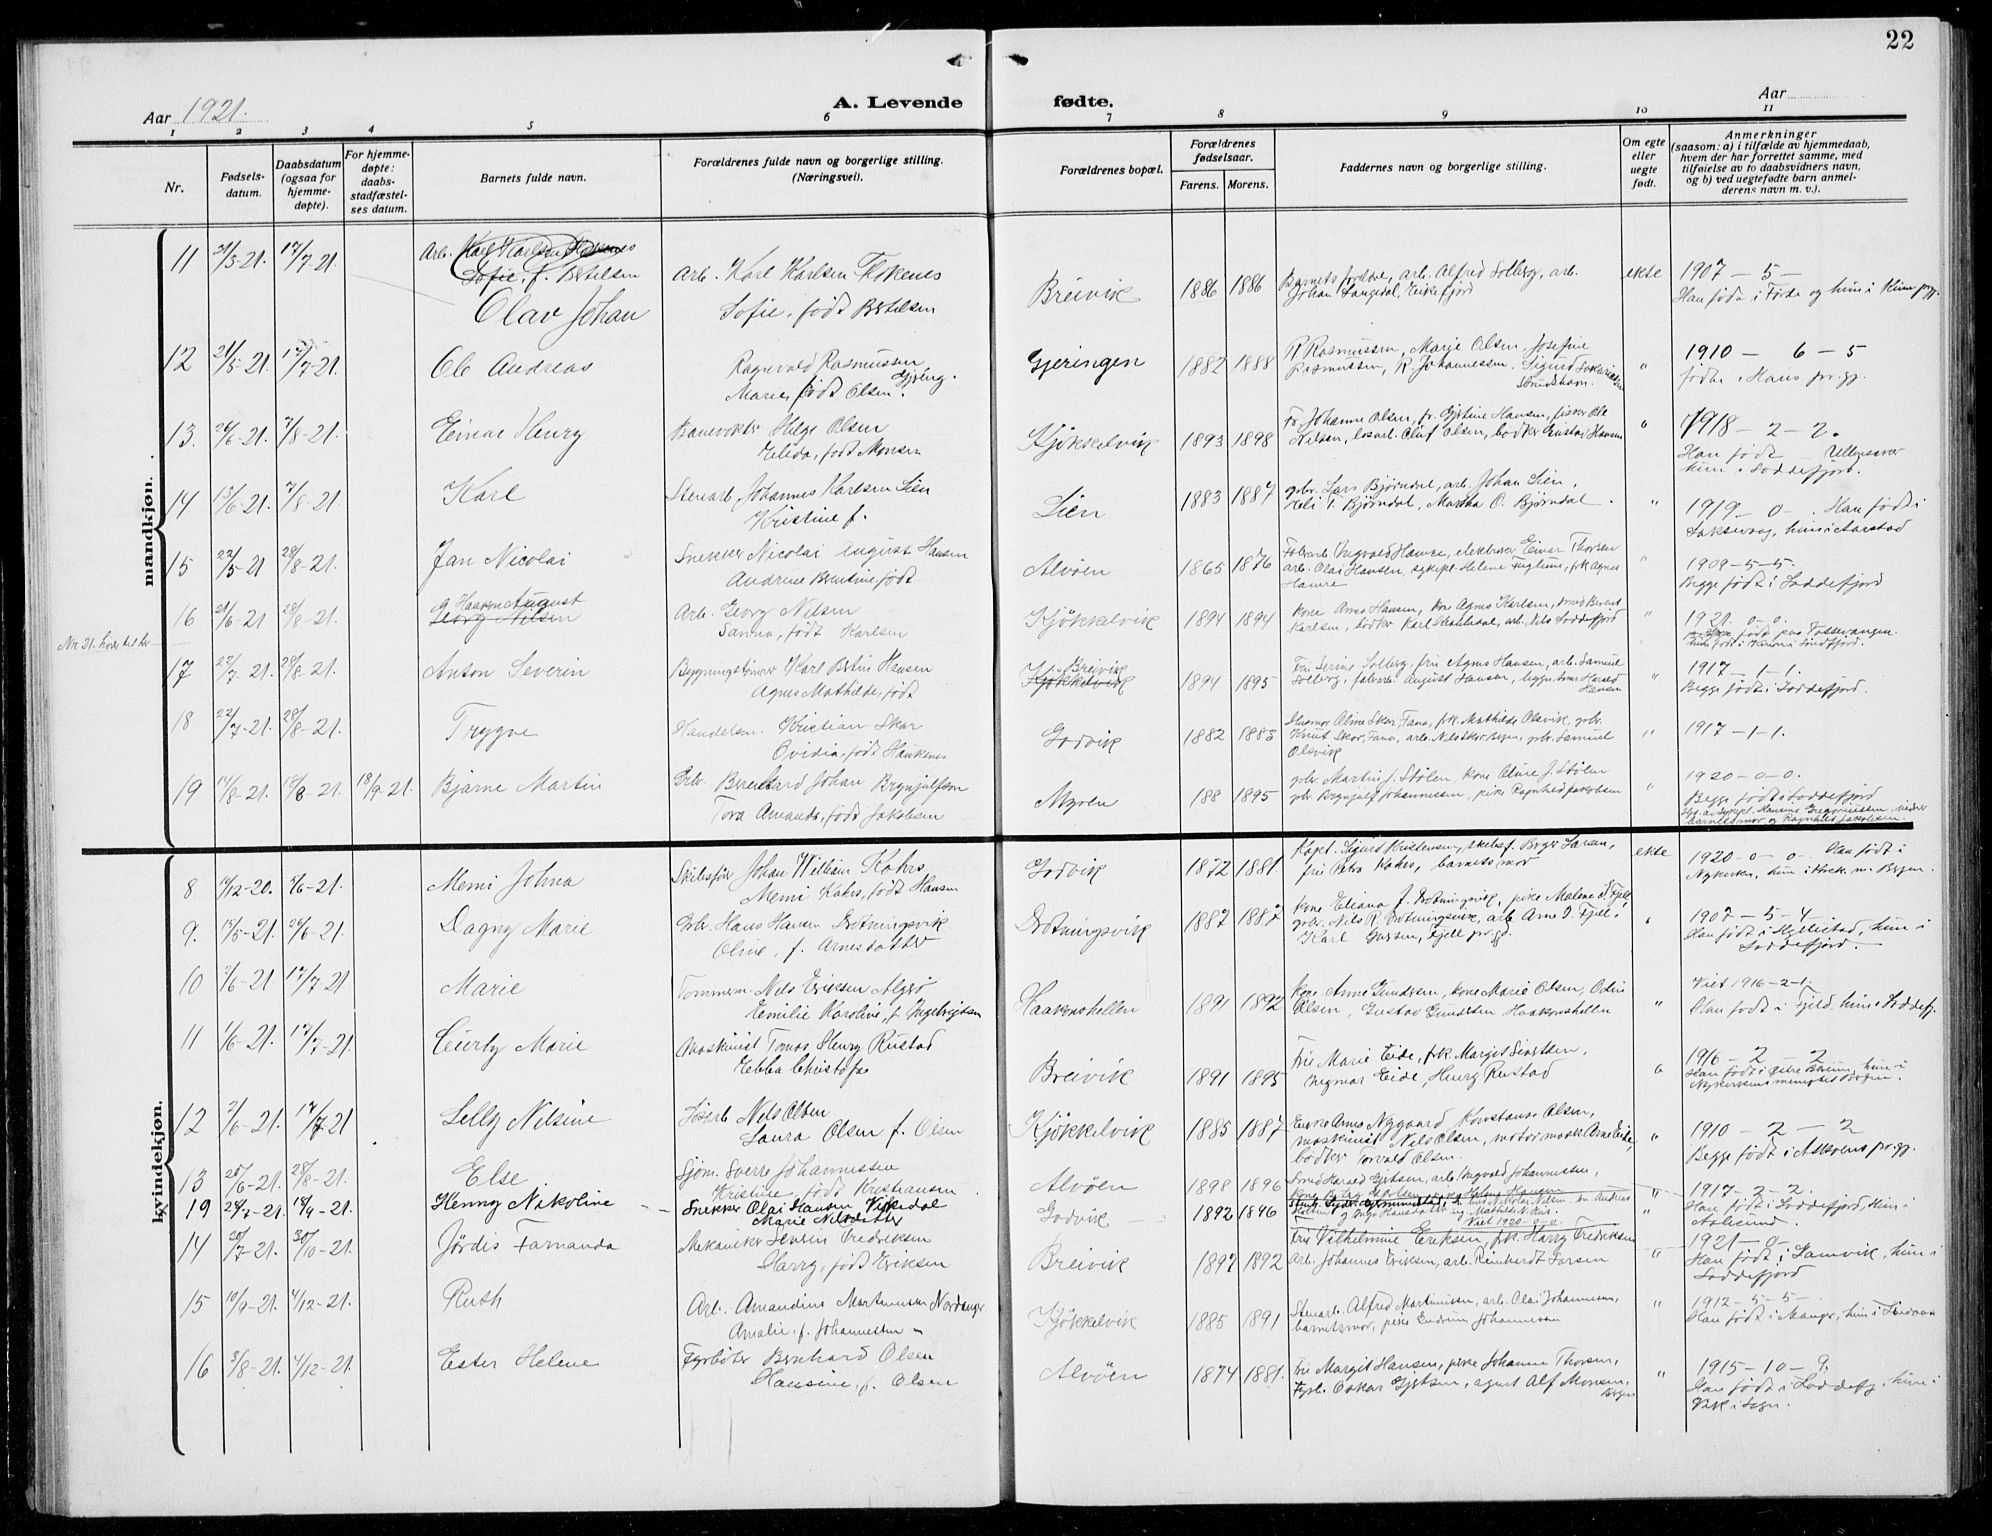 22
Aar 1921.
A. Levende fødte.
Aar
1 2 3 4 5 6 7 8 9 10 11
Nr.
Fødsels-
datum.
Daabsdatum
(ogsaa for
hjemme-
døpte).
For hjemme-
døpte:
daabs-
stadfæstel-
ses datum.
Barnets fulde navn.
Forældrenes fulde navn og borgerlige stilling.
(Næringsvei).
Forældrenes bopæl.
Forældrenes
fødselsaar.
Farens. Morens.
Faddernes navn og borgerlige stilling.
Om egte
eller
uegte
født.
Anmerkninger
(saasom: a) i tilfælde av hjemmedaab,
hvem der har forrettet samme, med
tilføielse av to daabsvidners navn,
og b) ved uegtefødte barn anmel-
derens navn m. v.).
mandkjøn.
11 17/7-21 Arb. Karl Karlsen
Sofie, f. Bertelsen
Olav Johan
Arb. Karl Karlsen Flokenes
Sofie, født Bertelsen
Breivik 1886 1886
Barnets forældre, arb. Alfred Solberg, arb.
Johan Langedal, Eikefjord
ekte
1907 - 5 -
Han født i Førde og hun i Kinn prgj.
12 21/5-21. 17/7-21. Ole Andreas
Ragnvald Rasmussen
Marie, født Olsen. Gjering.
Gjeringen 1882 1888
R Rasmussen, Marie Olsen, Josefine
Rasmussen, R. Johannessen, Sigurd
"
1910 - 6 - 5
født i Haus pr.gj.
13. 24/6-21. 7/8-21. Einar Henry
Banevokter Helge Olsen
Elida, født Monsen
Kjøkkelvik 1893 1898
Fr. Johanne Olsen, fr. Gjertine Hansen, fisker Ole
Nilsen, løsarb. Oluf Olsen, bødker Gustav Hansen
"
1918 - 2 - 2.
Han født Ullensaker
hun i Loddefjord.
14 13/6-21. 7/8-21. Karl
Stenarb. Johannes Karlsen Lien
Kristine f.
Lien 1883 1887
gbr. Lars Bjørndal, arb. Johan Lien,
Heli T. Bjørndal, Martha O. Bjørndal.
"
1919 - 0 - . Han født i
hun i Aarstad
15 22/5-21 28/8-21. Jan Nicolai
Snekker Nicolai August Hansen
Andrine Berntine, født
Alvøen 1865 1876
Fabarb. Ingvald Hamre, elektriker Einar Thorsen
arb. Olai Hansen, sykepl. Helene Fuglum, frk Agnes
Hamre
"
1909-5-5.
Begge født i Loddefjord
16 21/6-21 28/8-21. Haakon August
Georg Nilsen
Arb. Georg Nilsen
Sanna, født Karlsen
Kjøkkelvik 1894 1894
kone Anna Hansen, kone Agnes Karlsen, smed Bernt
Karlsen, bødker Karl, arb. Nils Loddefjord
"
1921. 0-0.
Nr. 21. hører til her
17 22/7-21. 28/8-21. Anton Severin
Bygningstømrer Karl Bertin Hansen
Agnes Mathilde, født
Breivik
Kjøkkelvik 1894 1895
Fru Serine Solberg, fru Agnes Hansen, arb. Samuel
Solberg, fabarb. August Hansen, Harald
Hansen
"
1917 - 1 - 1.
Begge født i Loddefjord.
18 22/7-21. 28/8-21. Trygve
Handelsm. Kristian Skar
Ovidia, født Haukenes
Godvik 1882 1883
Husmor Oline Skar, Fana, frk. Mathilde Olsvik, gbr.
Knut Skar, Fana, arb. Nils, gbr. Samuel
Olsvik
"
1917 - 1 - 1.
19 14/8-21. 18/8-21. 18/9-21. Bjarne Martin
Gbr. Berenhard Johan Brynjulfsen
Tora Amanda, født Jakobsen
Myren 188 1895
gbr. Martin J. Stølen, kone Oline J. Stølen
gbr Brynjulf Johannessen, pike Ragnhild Jakobsen
"
1920-0-0.
Begge født i Loddefjord
barnets mor og Ragnhild Jakobsen.
kvindekjøn.
8 4/6-21. Memi Johna
Skibsfør. Johan William Kahrs
Memi Kahrs, født Hansen
Godvik 1872 1881.
Kapt. Sigurd Kristensen, skibsf. Birger Larsen,
fru Petra Kahrs, barnets mor
ekte
1920-0-0. Han født i
Nykirken, hun i
9. 15/5-21. 26/6-21. Dagny Marie
Gbr. Hans Hansen Drotningsvik
Oline, f. Arnesdatter
Drotningsvik 1887 1887
Kone Eliana J. Drotningsvik, pike Malene I. Fjell,
gbr. Nils R. Drotningsvik, arb. Arne I. Fjell i
Karl Fjell pr.gj.
"
1907 - 5 - 4
Han født i Hyllestad, hun i
Loddefjord.
10 3/6-21. 17/7-21 Marie
Tømmerm. Nils Eriksen Algrø
Emilie Karoline, f. Ingebrigtsen
Haakonshellen 1891 1892
Kone Anne Gundersen, kone Marie Olsen, Odin
Olsen, Gustav Gundersen Haakonshellen
"
Viet 1916-2-1.
Han født i Fjeld, hun i Loddefj.
11 1/6-21. 17/7-21. Marie
Maskinist Tomas Henry Rustad
Ebba
Breivik 1891 1895
Fru Marie Eide, frk. Margit,
Ingmar Eide, Henry Rustad
1916 - 2 2
Nykirkens menighet Bergen.
12 2/6-21. 17/7-21 Selly Nilsine
Løsarb Nils Olsen
Laura Olsen f. Olsen
Kjøkkelvik 1885 1887
Enke Anna Nygaard Konstanse Olsen,
maskinist Nils Olsen, motormask Arne Eide,
bødker Torvald Olsen.
"
1910 - 2 - 2
Begge født i Askøens pr.gj.
13 25/6-21. 28/8-21. Else
Sjøm. Sverre Johannessen
Kristine, født Kristiansen
Alvøen 1898 1896
Smed Harald Gjertsen, arb. Ingvald Johannessen,
"
1917 - 2 - 2
Han født i Loddefjord, hun i
Aalesund.
19 24/7-21. 18/9-21. Henny Nikoline
Snekker Olai Hansen Vikedal
Marie Nilsdatter
Godvik 1892 1896
Viet 1920-0-0.
"
14 20/7-21. 30/10-21. Jördis Farnanda
Mekaniker Severin Fredriksen
Harry, født Eriksen
Breivik 1897 1892
Fru Vilhelmine Eriksen, frk. Harry Fredriksen
Arb. Johannes Eriksen, arb. Reinhardt Larsen
"
1921 - 0 -
Han født i Samvik, hun i
Loddefjord
15 10/9-21. 4/12-21. Ruth
Arb. Amandius Martinussen Nordanger
Amalie, f. Johannessen
Kjøkkelvik 1885 1891
Stenarb. Alfred Martinussen, arb. Olai Johannessen,
barnetsmor, pike Gudrun Johannessen
"
1912 - 5 - 5 -
Han født i Manger, hun i
16 3/8-21. 4/12-21. Ester Helene
Fyrbøter Bernhard Olsen
Hansine, f. Olsen
Alvøen 1874 1881.
Fru Margit Hansen, pike Johanne Thorsen,
Fyrb. Oskar Gjertsen, agent Alf Monsen,
Bergen
"
1915-10-9.
Han født i Loddefj., hun i
Vik i Sogn.